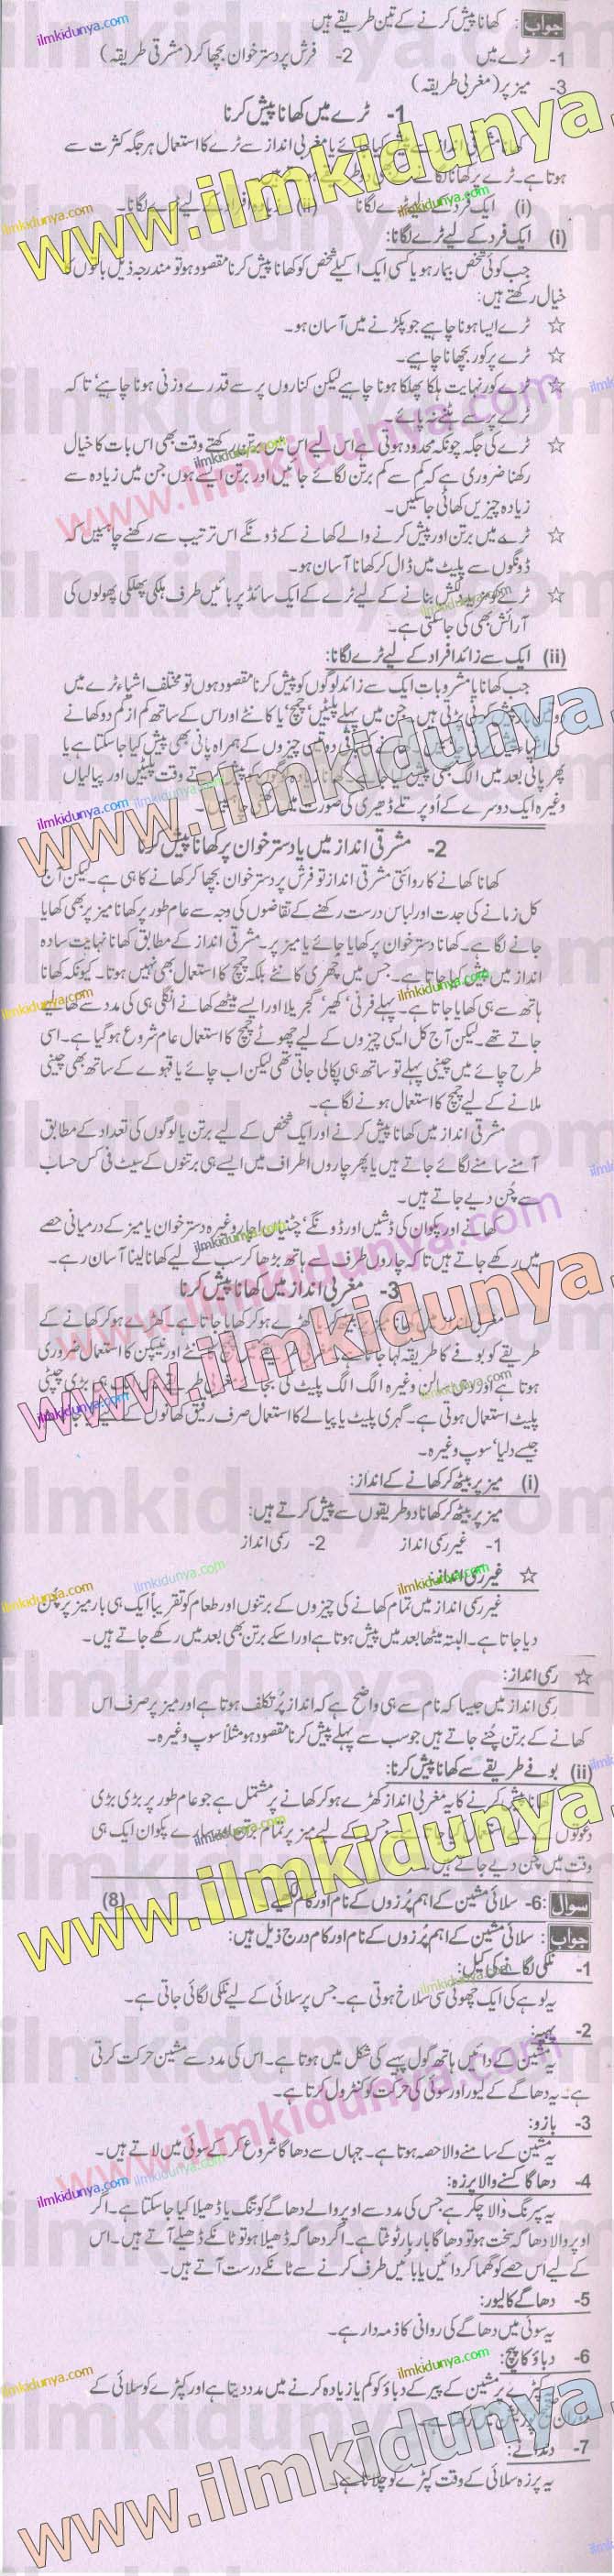 جواب : کھانا پیش کرنے کے تین طریقے ہیں
1- ٹرے میں 2- فرش پر دسترخوان بچھا کر (مشرقی طریقہ)
3- میز پر (مغربی طریقہ)
1- ٹرے میں کھانا پیش کرنا
کھانا مشرقی انداز سے پیش کیا جائے یا مغربی انداز سے ٹرے کا استعمال ہر جگہ کثرت سے
ہوتا ہے۔ ٹرے پر کھانا لگانے کے بھی دو طریقے ہوتے ہیں۔
(i) ایک فرد کے لیے ٹرے لگانا (ii) زیادہ افراد کے لیے ٹرے لگانا۔
(i) ایک فرد کے لیے ٹرے لگانا:
جب کوئی شخص بیمار ہو یا کسی ایک اکیلے شخص کو کھانا پیش کرنا مقصود ہو تو مندرجہ ذیل باتوں کا
خیال رکھتے ہیں:
☆ ٹرے ایسا ہونا چاہیے جو پکڑنے میں آسان ہو۔
☆ ٹرے پر کور بچھانا چاہیے۔
☆ ٹرے کور نہایت ہلکا پھلکا ہونا چاہیے لیکن کناروں پر سے قدرے وزنی ہونا چاہیے' تاکہ
ٹرے پر سے ہٹنے نہ پائے۔
☆ ٹرے کی جگہ چونکہ محدود ہوتی ہے اس لیے اس میں برتن رکھتے وقت بھی اس بات کا خیال
رکھنا ضروری ہے کہ کم سے کم برتن لگائے جائیں اور برتن ایسے ہوں جن میں زیادہ سے
زیادہ چیزیں کھائی جا سکیں۔
☆ ٹرے میں برتن اور پیش کرنے والے کھانے کے ڈونگے اس ترتیب سے رکھنے چاہئیں کہ
ڈونگوں سے پلیٹ میں ڈال کر کھانا آسان ہو۔
☆ ٹرے کو مزید دلکش بنانے کے لیے ٹرے کے ایک سائڈ پر بائیں طرف ہلکی پھلکی پھولوں کی
آرائش بھی کی جا سکتی ہے۔
(ii) ایک سے زائد افراد کے لیے ٹرے لگانا:
جب کھانا یا مشروبات ایک سے زائد لوگوں کو پیش کرنا مقصود ہوں تو مختلف اشیاء ٹرے میں
پیش کرنی پڑتی ہیں۔ جن میں پہلے پلیٹیں' چمچ' یا کانٹے اور اس کے ساتھ کم از کم دو کھانے
کی اشیاء پیش کرنی چیزوں کے ہمراہ پانی بھی پیش کیا جا سکتا ہے یا
پھر پانی بعد میں الگ بھی پیش کیا جاتا ہے۔ وقت پلیٹیں اور پیالیاں
وغیرہ ایک دوسرے کے اوپر تلے ڈھیری کی صورت میں رکھنی چاہئیں۔
2- مشرقی انداز میں یا دسترخوان پر کھانا پیش کرنا
کھانا کھانے کا روائتی مشرقی انداز تو فرش پر دسترخوان بچھا کر کھانے کا ہی ہے۔ لیکن آج
کل زمانے کی جدت اور لباس درست رکھنے کے تقاضوں کی وجہ سے عام طور پر کھانا میز پر بھی کھایا
جانے لگا ہے۔ کھانا دسترخوان پر کھایا جائے یا میز پر۔ مشرقی انداز کے مطابق کھانا نہایت سادہ
انداز میں پیش کیا جاتا ہے۔ جس میں چھری کانٹے بلکہ چمچ کا استعمال بھی نہیں ہوتا۔ کیونکہ کھانا
ہاتھ سے ہی کھایا جاتا ہے۔ پہلے فرنی' کھیر' گجریلا اور ایسے میٹھے کھانے انگلی ہی کی مدد سے کھا لیے
جاتے تھے۔ لیکن آج کل ایسی چیزوں کے لیے چھوٹے چمچ کا استعمال عام شروع ہو گیا ہے۔ اسی
طرح چائے میں چینی پہلے تو ساتھ ہی پکا لی جاتی تھی لیکن اب چائے یا قہوے کے ساتھ بھی چینی
ملانے کے لیے چمچ کا استعمال ہونے لگا ہے۔
مشرقی انداز میں کھانا پیش کرنے اور ایک شخص کے لیے برتن یا لوگوں کی تعداد کے مطابق
آمنے سامنے لگائے جاتے ہیں یا پھر چاروں اطراف میں ایسے ہی برتنوں کے سیٹ فی کس حساب
سے چُن دیے جاتے ہیں۔
کھانے اور پکوان کی ڈشیں اور ڈونگے' چٹنیاں' اچار وغیرہ دسترخوان یا میز کے درمیانی حصے
میں رکھے جاتے ہیں تاکہ چاروں طرف سے ہاتھ بڑھا کر سب کے لیے کھانا لینا آسان رہے۔
3- مغربی انداز میں کھانا پیش کرنا
مغربی انداز میں کھانا میز پر بیٹھ کر یا کھڑے ہو کر کھایا جاتا ہے۔ کھڑے ہو کر کھانے کے
طریقے کو بوفے کا طریقہ کہا جاتا ہے۔ کانٹے اور نیپکن کا استعمال ضروری
ہوتا ہے اور وغیرہ الگ الگ پلیٹ کی بجائے بڑی چپٹی
پلیٹ استعمال ہوتی ہے۔ گہری پلیٹ یا پیالے کا استعمال صرف رقیق کھانوں کے لیے کیا جاتا ہے
جیسے دلیا' سوپ وغیرہ۔
(i) میز پر بیٹھ کر کھانے کے انداز:
میز پر بیٹھ کر کھانا دو طریقوں سے پیش کرتے ہیں:
1- غیر رسمی انداز 2- رسمی انداز
☆ غیر رسمی انداز:
غیر رسمی انداز میں تمام کھانے کی چیزوں کے برتنوں اور طعام کو تقریباً ایک ہی بار میز پر چُن
دیا جاتا ہے۔ البتہ میٹھا بعد میں پیش ہوتا ہے اور اسکے برتن بھی بعد میں رکھے جاتے ہیں۔
☆ رسمی انداز:
رسمی انداز میں جیسا کہ نام سے ہی واضح ہے کہ انداز پُر تکلف ہوتا ہے اور میز پر صرف اس
کھانے کے برتن چُنے جاتے ہیں جو سب سے پہلے پیش کرنا مقصود ہو مثلاً سوپ وغیرہ۔
(ii) بوفے طریقے سے کھانا پیش کرنا:
کھانا پیش کرنے کا یہ مغربی انداز کھڑے ہو کر کھانے پر مشتمل ہے جو عام طور پر بڑی بڑی
دعوتوں کے لیے استعمال کیا جاتا ہے۔ جس کے لیے میز پر تمام برتن اور سارے پکوان ایک ہی
وقت میں چُن دیے جاتے ہیں۔
سوال 6: سلائی مشین کے اہم پُرزوں کے نام اور کام لکھیے۔ (8)
جواب : سلائی مشین کے اہم پُرزوں کے نام اور کام درج ذیل ہیں:
1- نلکی لگانے کی کیل:
یہ لوہے کی ایک چھوٹی سی سلاخ ہوتی ہے۔ جس پر سلائی کے لیے نلکی لگائی جاتی ہے۔
2- پہیہ:
یہ مشین کے دائیں ہاتھ گول پہیے کی شکل میں ہوتا ہے۔ اس کی مدد سے مشین حرکت کرتی
ہے۔ یہ دھاگے کے لیور اور سوئی کی حرکت کو کنٹرول کرتا ہے۔
3- بازو:
یہ مشین کے سامنے والا حصہ ہوتا ہے۔ جہاں سے دھاگا شروع کر کے سوئی میں لاتے ہیں۔
4- دھاگا کسنے والا پرزہ:
یہ سپرنگ والا چکر ہے جس کی مدد سے اوپر والے دھاگے کو تنگ یا ڈھیلا کیا جا سکتا ہے۔ اگر
اوپر والا دھاگہ سخت ہو تو دھاگا بار بار ٹوٹتا ہے۔ اگر دھاگہ ڈھیلا ہو تو ٹانکے ڈھیلے آتے ہیں۔ اس
کے لیے اس حصے کو گھما کر دائیں یا بائیں طرف کرنے سے ٹانکے درست آتے ہیں۔
5- دھاگے کا لیور:
یہ سوئی میں دھاگے کی روانی کا ذمہ دار ہے۔
6- دباؤ کا پیچ:
کپڑے پر مشین کے پیر کے دباؤ کو کم یا زیادہ کرنے میں مدد دیتا ہے اور کپڑے کو سلائی کے
دوران صحیح پوزیشن میں رکھتا ہے۔
7- دندانے:
یہ پرزہ سلائی کے وقت کپڑے کو چلاتا ہے۔
www.ilmkidunya.com